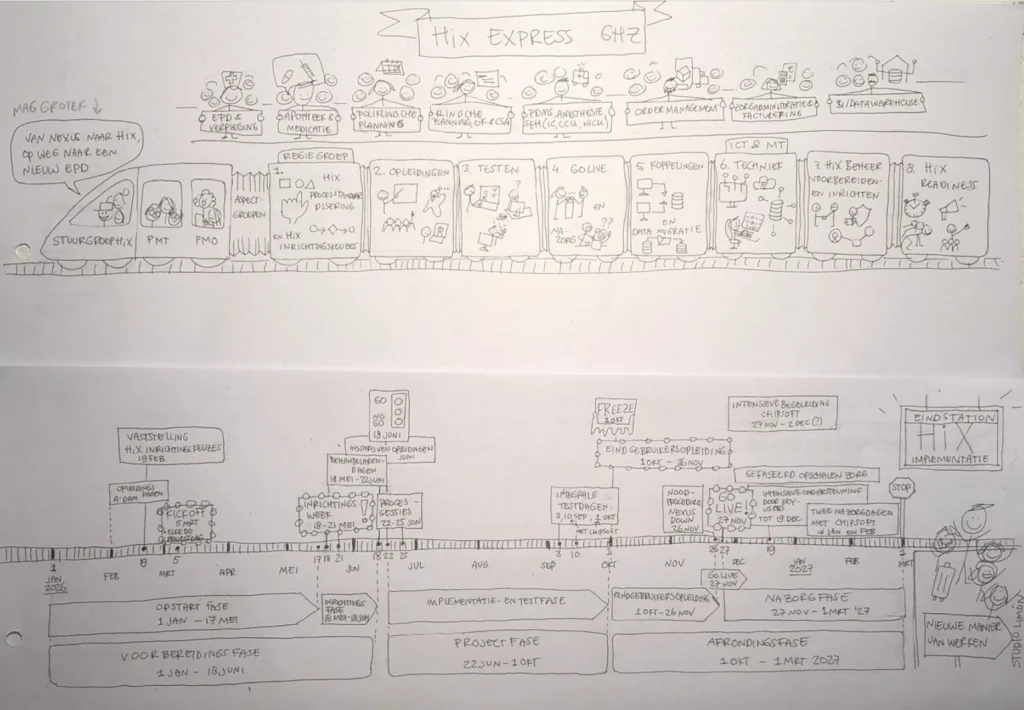 HIX EXPRESS 6HZ
MAG GROTER
VAN NEXUS NAAR HIX,
OP WEG NAAR EEN
NIEUW EPD
EPD &
VERPLEGING
APOTHEEK &
MEDICATIE
POLIKLINISCHE
PLANNING
KLINISCHE
PLANNING, OK & CSA
PDMS, ANESTHESIE,
SEH (IC, CCU, NICU)
ORDERMANAGEMENT
ZORGADMINISTRATIE &
FACTURERING
BI/DATAWAREHOUSE
STUURGROEP HIX
PMT
PMO
ASPECT-
GROEPEN
REGIEGROEP
1.
HIX
PROCESSTANDAAR
DISERING
EN HIX
INRICHTINGSKEUZES
2. OPLEIDINGEN
3. TESTEN
?
4. GO LIVE
EN
NA-
ZORG
??
5. KOPPELINGEN
EN
DATA MIGRATIE
ICT & MT
6. TECHNIEK
7. HIX BEHEER
VOORBEREIDEN-
EN INRICHTEN
8. HIX
READINESS
VASTSTELLING
HIX INRICHTINGSKEUZES
19 FEB
OPLEIDINGS
A'DAM DAGEN
KICKOFF
5 MRT
GO
NO
GO
18 JUNI
INSCHRIJVEN OPLEIDINGEN
JUNI
BEHANDELAREN-
DAGEN
18 MEI - 22 JUNI
INRICHTINGS
WEEK
18 - 21 MEI
PROCES-
SESSIES
22-25 JUN
FREEZE
1 OKT
EINDGEBRUIKERSOPLEIDING
1 OKT - 26 NOV
INTEGRALE
TESTDAGEN
3, 10 SEP, 1 OKT
MET CHIPSOFT
NOOD-
PROCEDURE
NEXUS
DOWN
26 NOV
INTENSIEVE BEGELEIDING
CHIPSOFT
27 NOV - 2 DEC (?)
GEFASEERD OPSCHALEN ZORG
GO
LIVE!
27 NOV
INTENSIEVE ONDERSTEUNING
DOOR KEY-
USERS
TOT 19 DEC
STOP
TWEE NAZORGDAGEN
MET CHIPSOFT
IN JAN EN FEB
EINDSTATION
HIX
IMPLEMENTATIE
1
JAN
2026
FEB
19
MRT
5
APR
MEI
17 18 21
JUN
18 22 25
JUL
AUG
SEP
3 10
1
OKT
NOV
26 27
DEC
19
1
JAN
2027
FEB
1
MRT
GO LIVE
27 NOV
OPSTART FASE
1 JAN - 17 MEI
INRICHTINGS
FASE
18 MEI - 18 JUN
IMPLEMENTATIE- EN TESTFASE
EINDGEBRUIKERSOPLEIDING
1 OKT - 26 NOV
NAZORGFASE
27 NOV - 1 MRT '27
VOORBEREIDINGSFASE
1 JAN - 18 JUNI
PROJECT FASE
22 JUN - 1 OKT
AFRONDINGSFASE
1 OKT - 1 MRT 2027
NIEUWE MANIER
VAN WERKEN
STUDIO LIMON